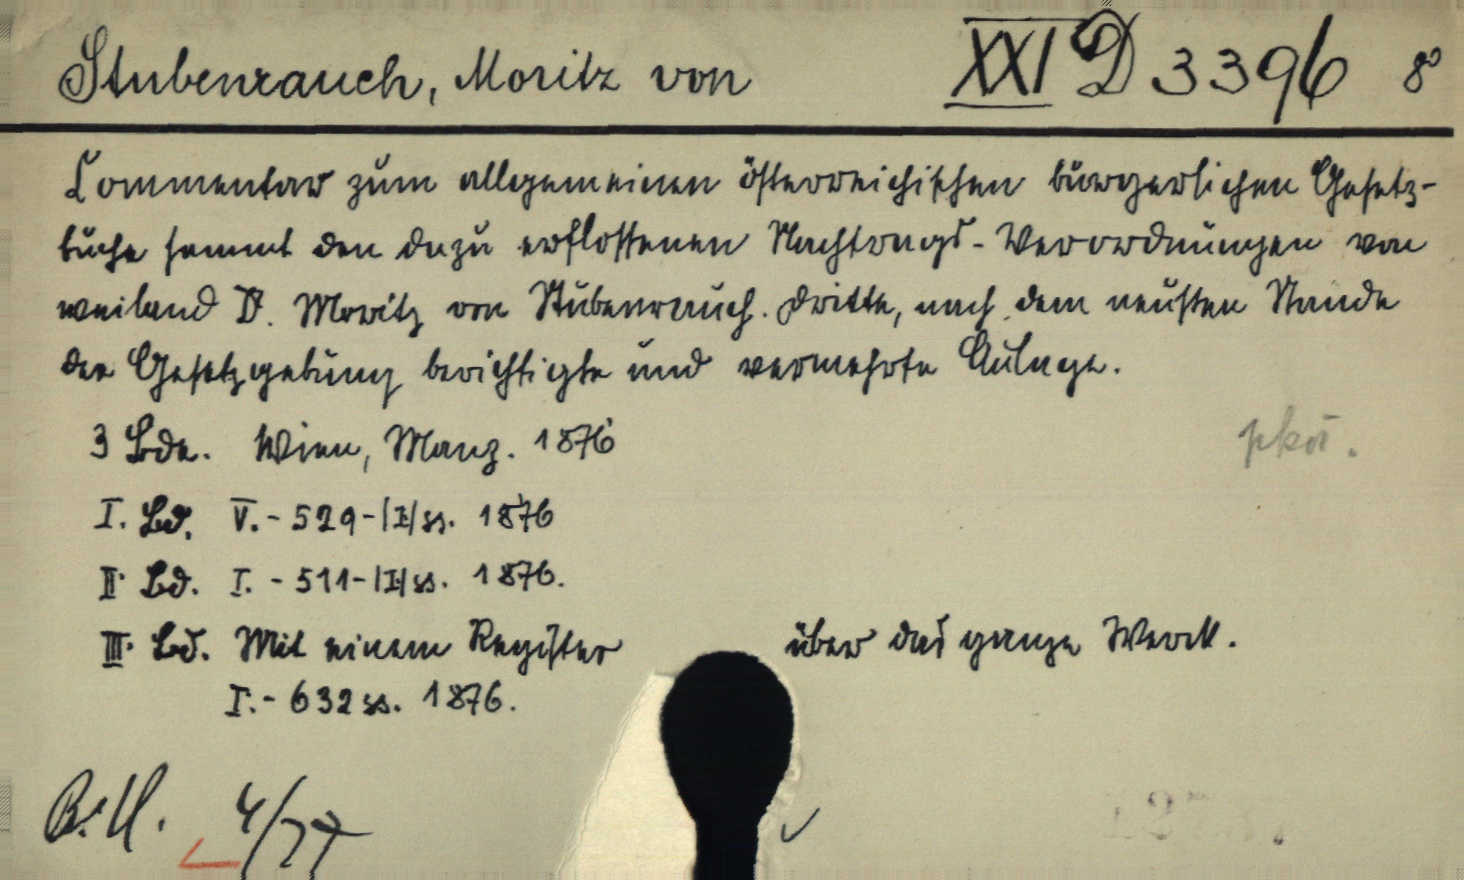 Stubenrauch, Moritz von XXI D 3396 8°
Commentar zum allgemeinen österreichischen bürgerlichen Gesetz-
buche sammt den dazu erflossenen Nachtrags-Verordnungen von
weiland Dr. Moritz von Stubenrauch. Dritte, nach dem neusten Stande
der Gesetzgebung berichtigte und vermehrte Aulage.
3 Bde. Wien, Manz. 1876
I. Bd. V. - 529 - |I| ss. 1876
II. Bd. I. - 511 - |I| ss. 1876.
III. Bd. Mit einem Register über das ganze Werk.
I. - 632 ss. 1876.
4/77